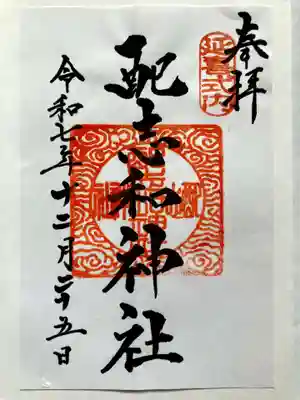 奉拝
延喜式内
配志和神社
令和七年十二月二十五日